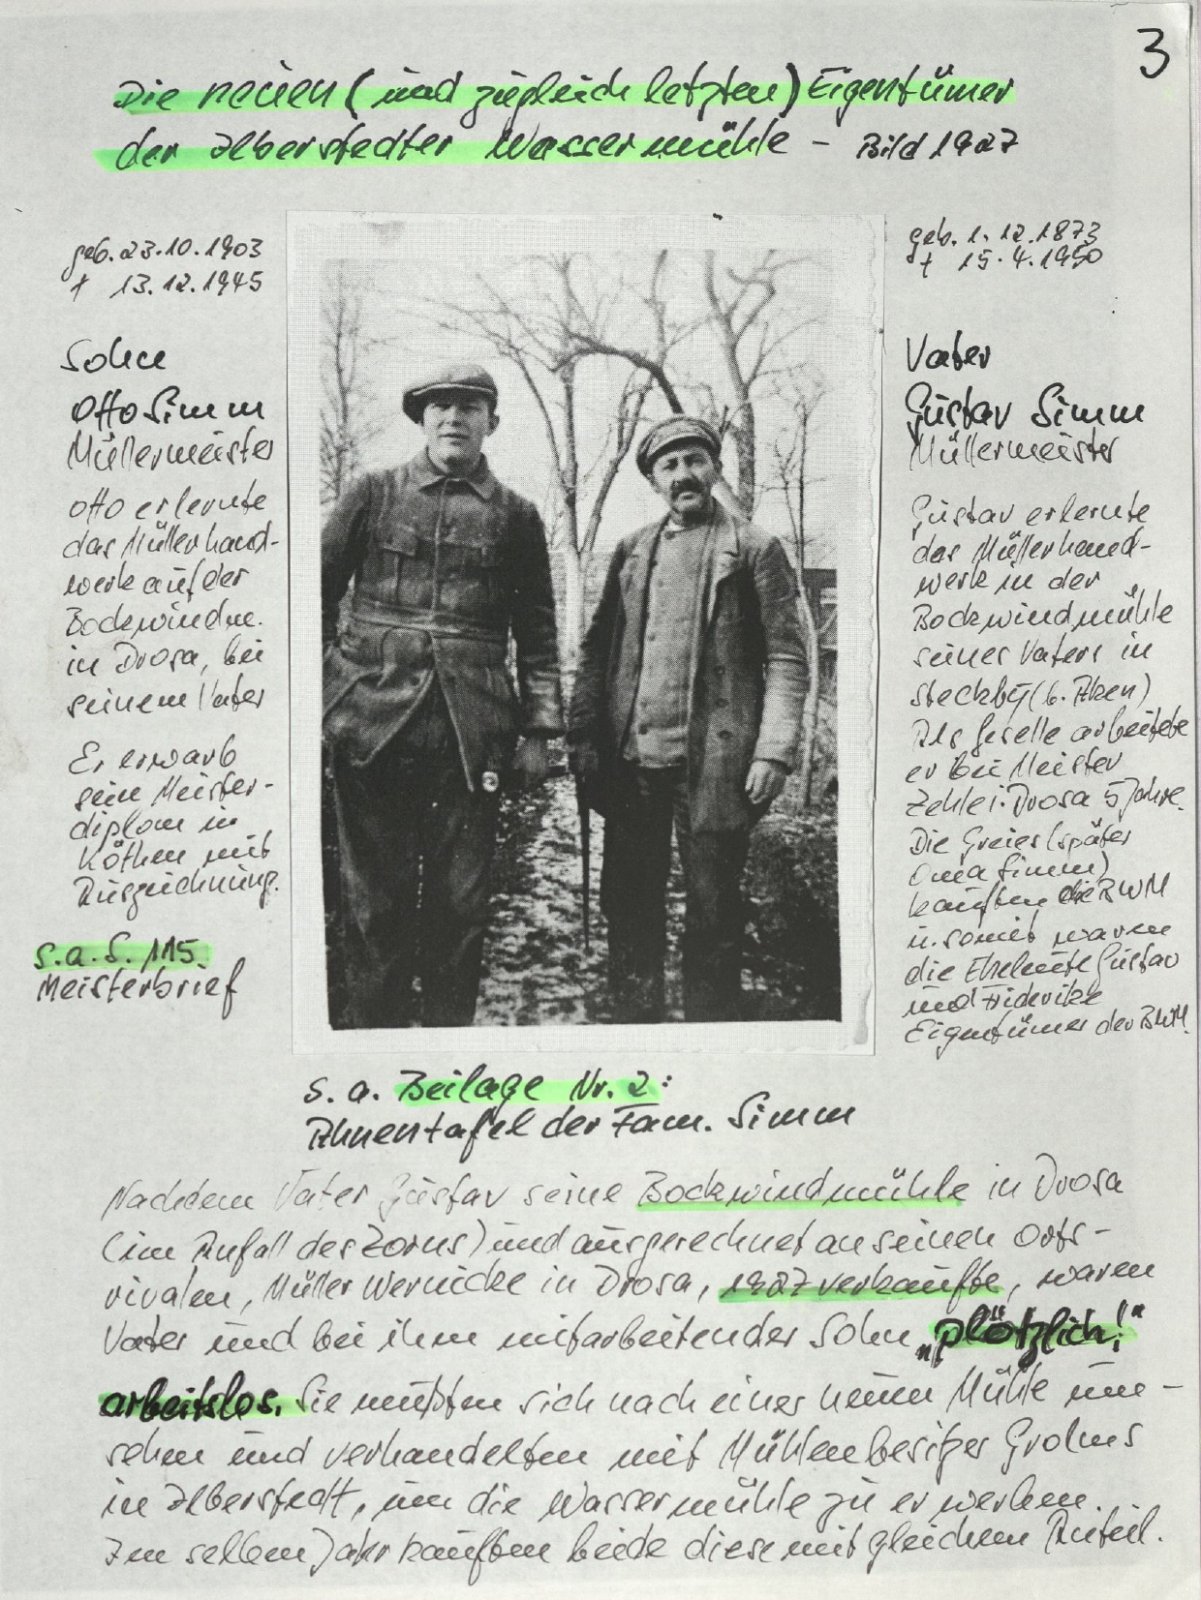 3
Die neuen (und zugleich letzten) Eigentümer
der Ilberstedter Wassermühle – Bild 1927
geb. 23.10.1903
† 13.12.1945
Sohn
Otto Simm
Müllermeister
Otto erlernte
das Müllerhand-
werk auf der
Bockwindm.
in Drosa, bei
seinem Vater
Er erwarb
sein Meister-
diplom in
Köthen mit
Auszeichnung.
s.a.S. 115.
Meisterbrief
geb. 1.12.1873
† 15.4.1950
Vater
Gustav Simm
Müllermeister
Gustav erlernte
das Müllerhand-
werk in der
Bockwindmühle
seines Vaters in
Steckby (b. Aken)
Als Geselle arbeitete
er bei Meister
Zehle i. Drosa 5 Jahre.
Die (später
Oma Simm)
kauften die BWM
u. somit waren
die Eheleute Gustav
und Friderike
Eigentümer der BWM.
s. a. Beilage Nr. 2:
Ahnentafel der Fam. Simm
Nachdem Vater Gustav seine Bockwindmühle in Drosa
(im Anfall des Zorns) und ausgerechnet an seinen Orts-
rivalen, Müller Wernicke in Drosa, 1927 verkaufte, waren
Vater und bei ihm mitarbeitender Sohn „plötzlich!"
arbeitslos. Sie mußten sich nach einer neuen Mühle um-
sehen und verhandelten mit Mühlenbesitzer Grolms
in Ilberstedt, um die Wassermühle zu erwerben.
Im selben Jahr kauften beide diese mit gleichem Anteil.